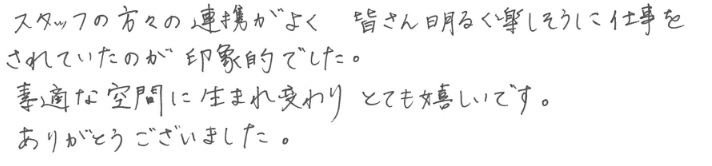 スタッフの方々の連携がよく　皆さん明るく楽しそうに仕事を
されていたのが印象的でした。
素適な空間に生まれ変わり とても嬉しいです。
ありがとうございました。